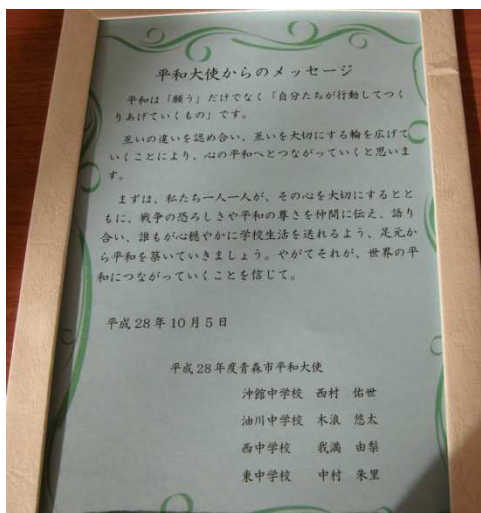 平和大使からのメッセージ
平和は「願う」だけでなく「自分たちが行動してつく
りあげていくもの」です。
互いの違いを認め合い、互いを大切にする輪を広げて
いくことにより、心の平和へとつながっていくと思いま
す。
まずは、私たち一人一人が、その心を大切にするとと
もに、戦争の恐ろしさや平和の尊さを仲間に伝え、語り
合い、誰もが心穏やかに学校生活を送れるよう、足元か
ら平和を築いていきましょう。やがてそれが、世界の平
和につながっていくことを信じて。
平成28年10月5日
平成28年度青森市平和大使
沖館中学校 西村 佑世
油川中学校 木浪 悠太
西中学校 我満 由梨
東中学校 中村 朱里